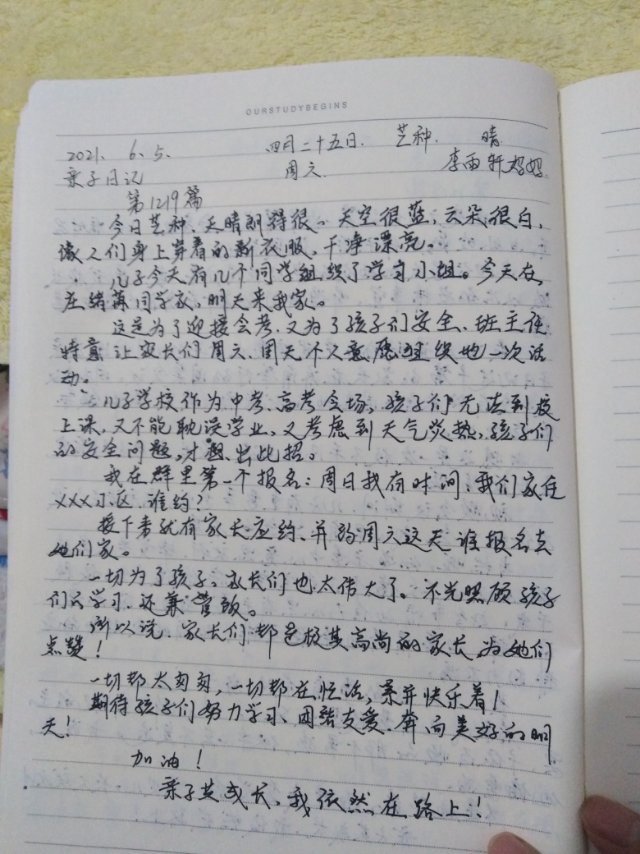 OURSTUDYBEGINS
2021. 6. 5. 四月二十五日. 芒种. 晴
亲子日记 周六. 李雨轩妈妈
第1219篇
今日芒种、天晴朗得很。天空很蓝,云朵很白,
像人们身上穿着的新衣服,干净漂亮。
儿子今天有几个同学组织了学习小组。今天在
同学家,明天来我家。
这是为了迎接会考、又为了孩子们安全、班主任
特意让家长们周六、周天个人意愿组织她一次活
动。
儿子学校作为中考、高考考场,孩子们无法到校
上课,又不能耽误学业,又考虑到天气炎热,孩子们
的安全问题,才想出此招。
我在群里第一个报名:周日我有时间,我们家住
XXX小区,谁约?
接下来就有家长应约、并约周六这天谁报名去
她们家。
一切为了孩子,家长们也太伟大了。不光照顾孩子
们的学习,还兼管饭。
所以说,家长们都是极其高尚的家长,为她们
点赞!
一切都太匆匆,一切都在忙活,累并快乐着!
期待孩子们努力学习、团结友爱、奔向美好的明
天!
加油!
亲子共成长,我依然在路上!